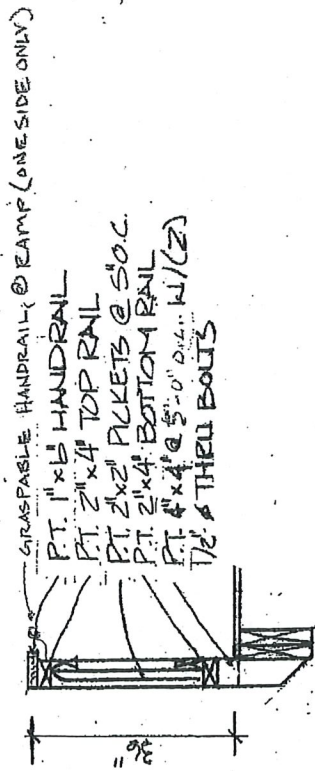 GRASPABLE HANDRAIL @ RAMP (ONE SIDE ONLY)
P.T. 1"x6" HANDRAIL
P.T. 2"x4" TOP RAIL
P.T. 2"x2" PICKETS @ 5" O.C.
P.T. 2"x4" BOTTOM RAIL
P.T. 4"x4" @ 5'-0" O.C. W/(2)
1/2" ø THRU BOLTS
36"